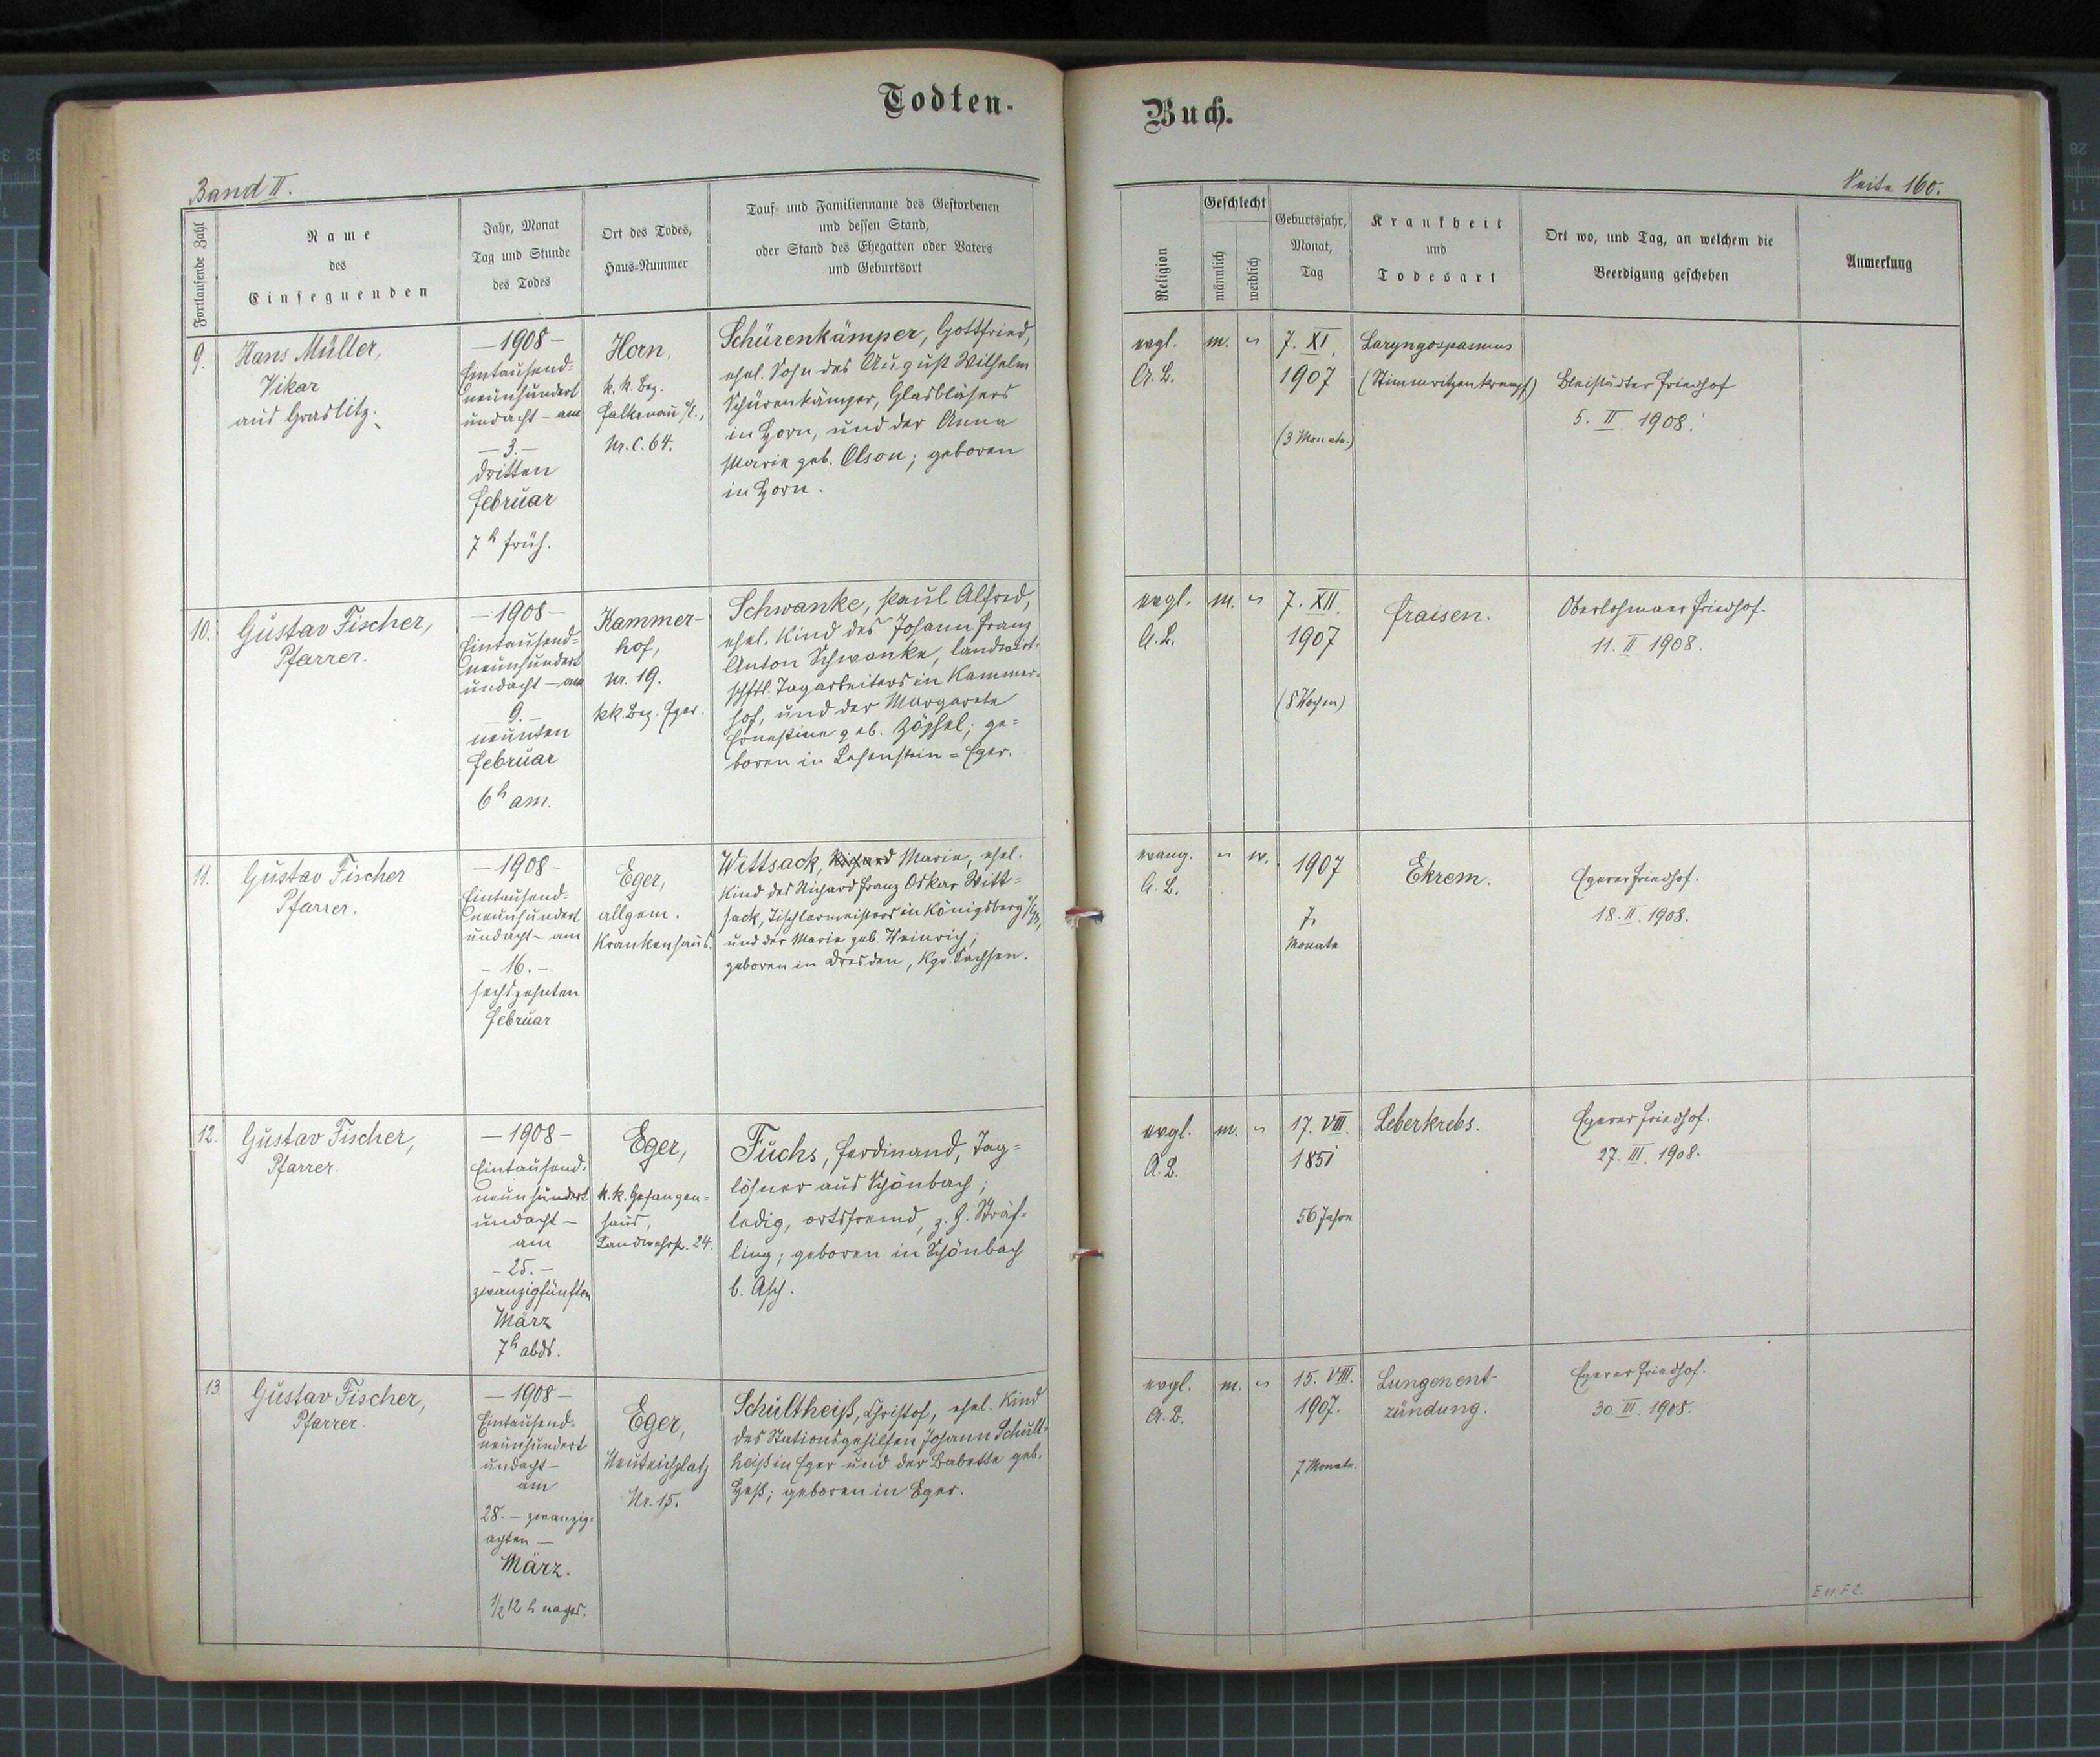 Todten-
Buch.
Band II.
Seite 160.
Fortlaufende Zahl
Name
des
Einsegnenden
Jahr, Monat
Tag und Stunde
des Todes
Ort des Todes,
Haus-Nummer
Tauf- und Familienname des Gestorbenen
und dessen Stand,
oder Stand des Ehegatten oder Vaters
und Geburtsort
Religion
Geschlecht
männlich
weiblich
Geburtsjahr,
Monat,
Tag
Krankheit
und
Todesart
Ort wo, und Tag, an welchem die
Beerdigung geschehen
Anmerkung
9.
Hans Müller,
Vikar
aus Graslitz.
— 1908 —
Eintausend-
neunhundert
undacht — am
— 3. —
dritten
Februar
7 h früh.
Horn,
k. k. Bez.
Falkenau a/E.,
Nr. C. 64.
Schürenkämper, Gottfried,
ehel. Sohn des August Wilhelm
Schürenkämper, Glasbläsers
in Horn, und der Anna
Marie geb. Olson; geboren
in Horn.
evgl.
A. B.
m.
"
7. XI.
1907
(3 Monate.)
Laryngospasmus
(Stimmritzenkrampf)
Bleistädter Friedhof
5. II. 1908.
10.
Gustav Fischer,
Pfarrer.
— 1908 —
Eintausend-
neunhundert
undacht — am
— 9. —
neunten
Februar
6 h am.
Kammer-
hof,
Nr. 19.
kk. Bez. Eger.
Schwanke, Paul Alfred,
ehel. Kind des Johann Franz
Anton Schwanke, landwirt-
schftl. Tagarbeiters in Kammer-
hof, und der Margarete
Ernestine geb. Zöphel; ge-
boren in Lehenstein - Eger.
evgl.
A. B.
m.
"
7. XII.
1907
(8 Wochen)
Fraisen.
Oberlohmaer Friedhof.
11. II 1908.
11.
Gustav Fischer
Pfarrer.
— 1908 —
Eintausend-
neunhundert
undacht — am
— 16. —
sechszehnten
Februar
Eger,
allgem.
Krankenhaus.
Wittsack, Richard Marie, ehel.
Kind des Richard Franz Oskar Witt-
sack, Tischlermeisters in Königsberg a/E.,
und der Marie geb. Weinrich;
geboren in Dresden, Kgr. Sachsen.
evang.
A. B.
"
w.
1907
7
Monate
Ekrem.
Egerer Friedhof.
18. II. 1908.
12.
Gustav Fischer,
Pfarrer.
— 1908 —
Eintausend-
neunhundert
undacht —
am
— 25. —
zwanzigfünften
März
7 h abds.
Eger,
k. k. Gefangen-
haus,
Landwehrstr. 24.
Fuchs, Ferdinand, Tag-
löhner aus Schönbach;
ledig, ortsfremd, z. Z. Sträf-
ling; geboren in Schönbach
b. Asch.
evgl.
A. B.
m.
"
17. VIII.
1851
56 Jahre
Leberkrebs.
Egerer Friedhof.
27. III. 1908.
13.
Gustav Fischer,
Pfarrer.
— 1908 —
Eintausend-
neunhundert
undacht —
am
28. — zwanzig-
achten —
März.
1/2 12 h nachts.
Eger,
Neuteichplatz
Nr. 15.
Schultheiß, Christof, ehel. Kind
des Stationsgehilfen Johann Schult-
heiß in Eger und der Babette geb.
Heß; geboren in Eger.
evgl.
A. B.
m.
"
15. VIII.
1907.
7 Monate.
Lungenent-
zündung.
Egerer Friedhof.
30. III. 1908.